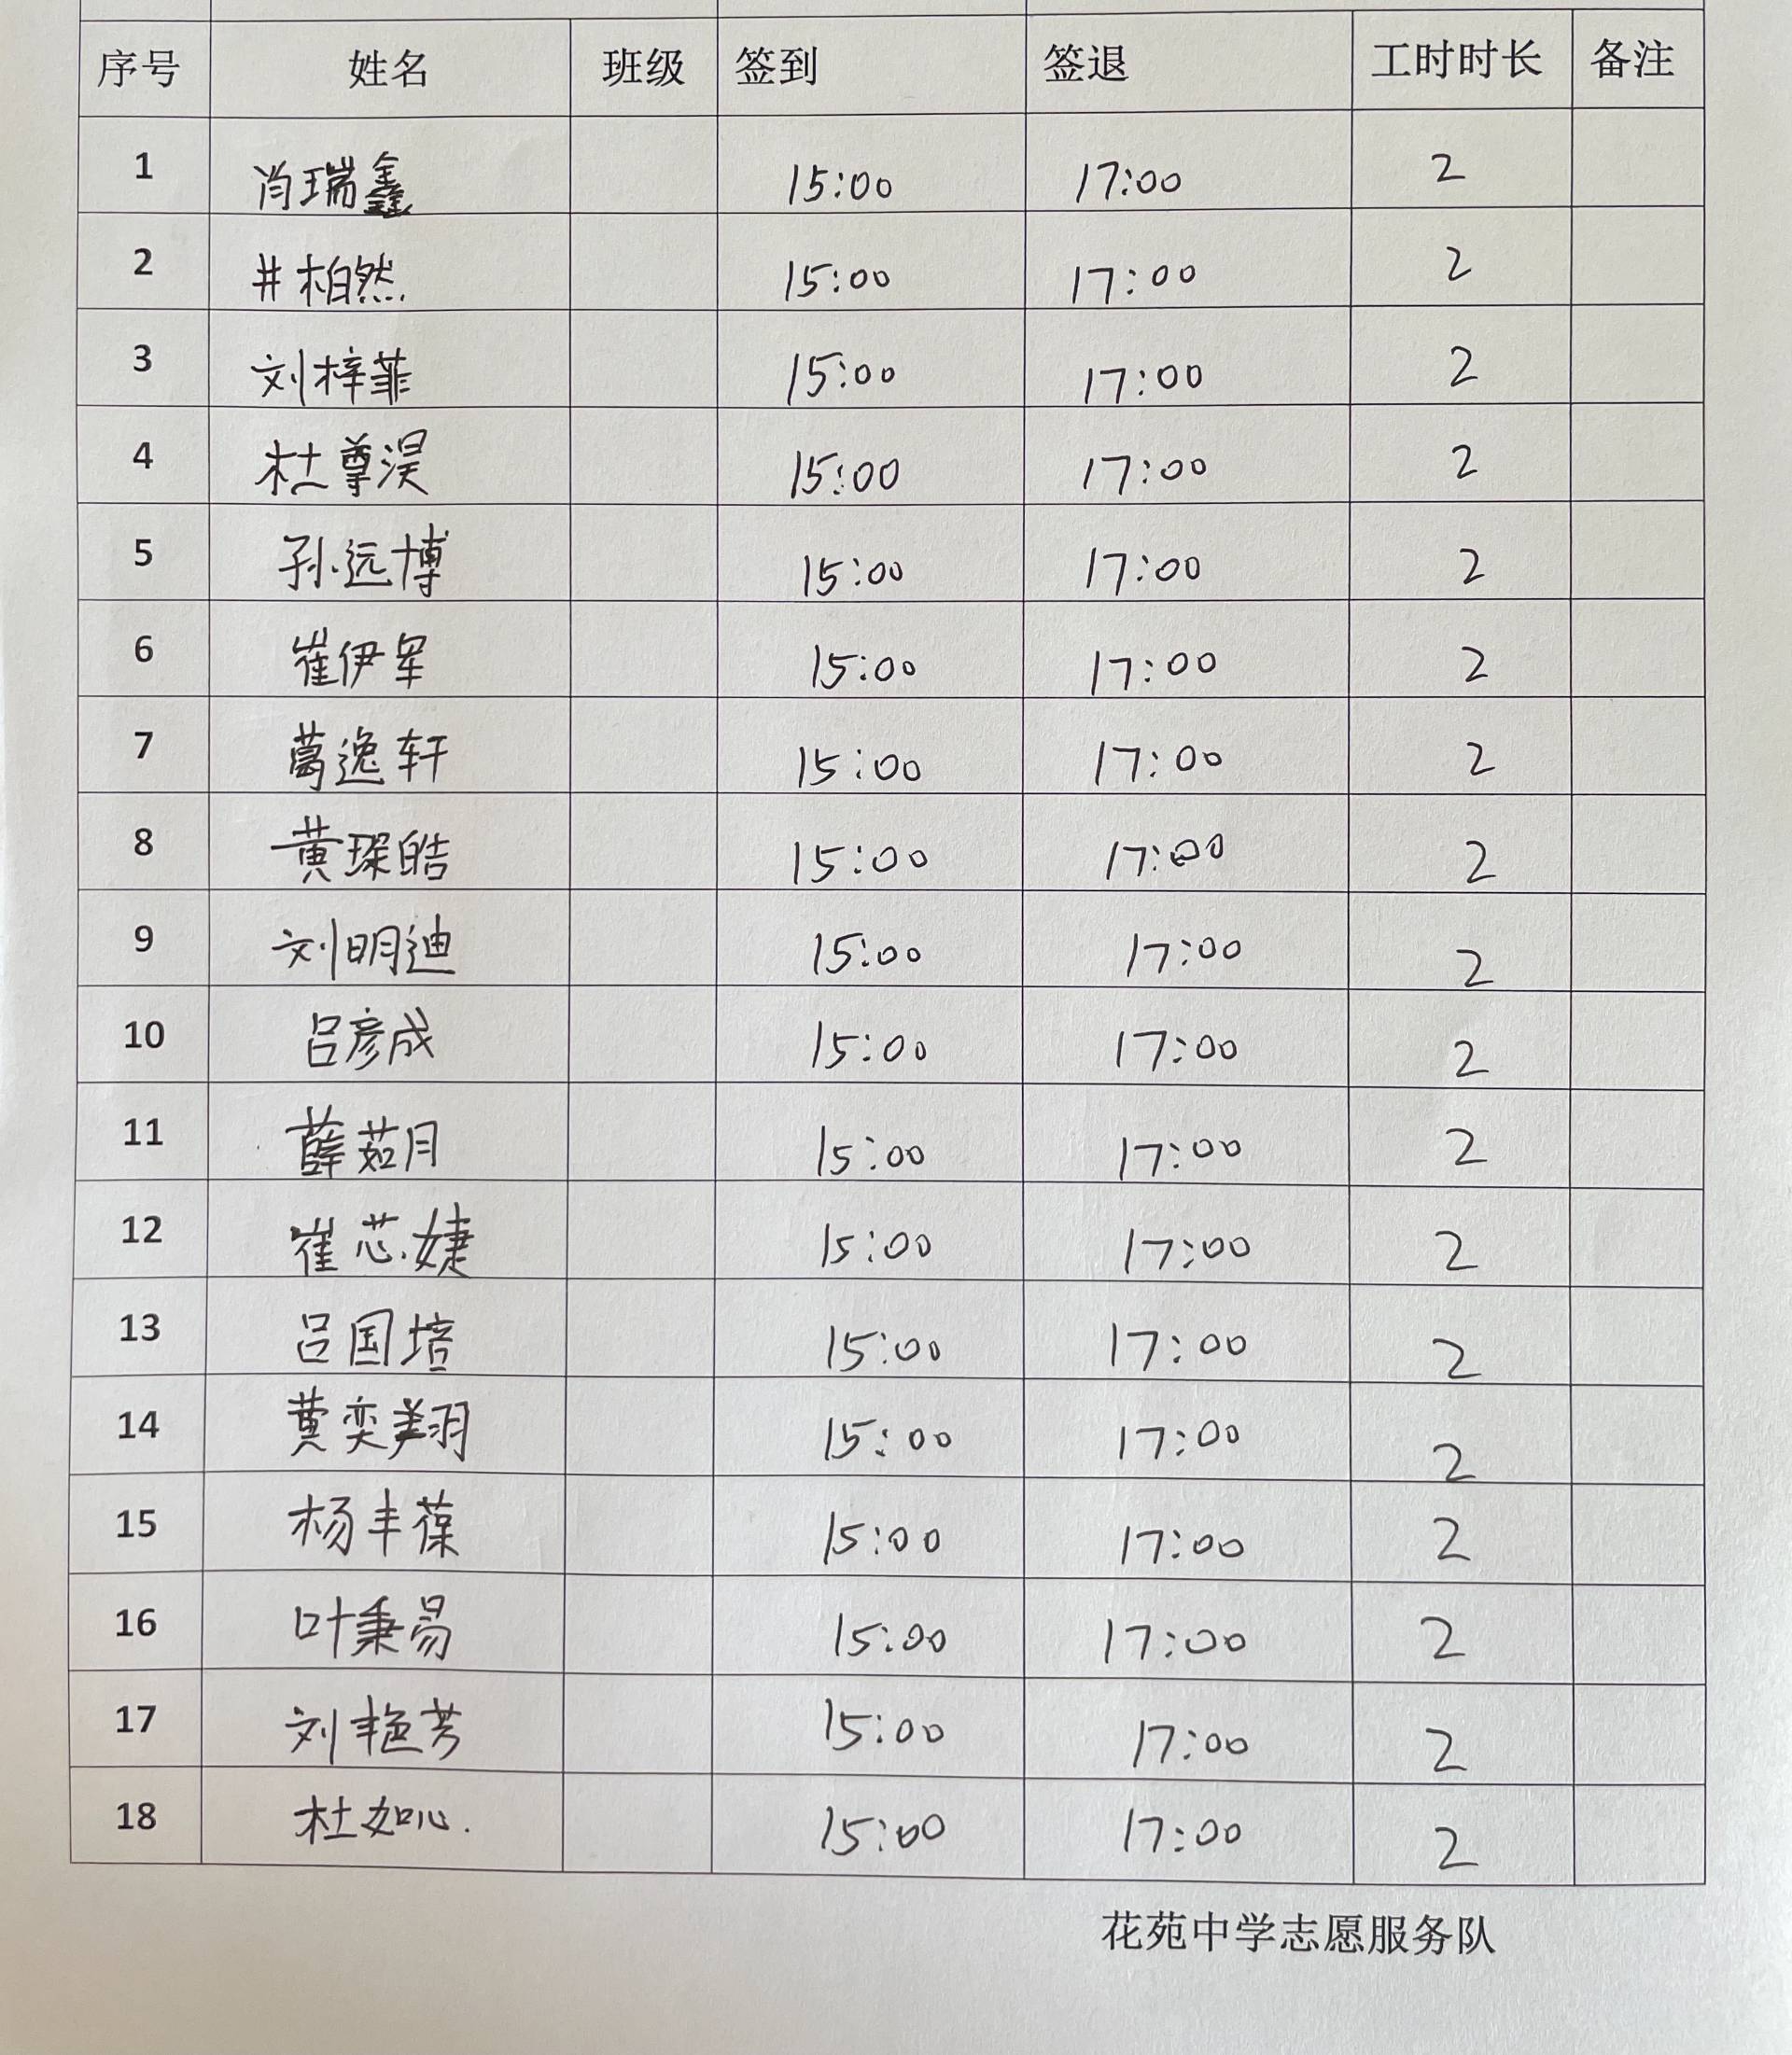 序号 姓名 班级 签到 签退 工时时长 备注
1 肖瑞鑫 15:00 17:00 2
2 井柏然 15:00 17:00 2
3 刘梓菲 15:00 17:00 2
4 杜尊淏 15:00 17:00 2
5 孙远博 15:00 17:00 2
6 崔伊军 15:00 17:00 2
7 葛逸轩 15:00 17:00 2
8 黄琛皓 15:00 17:00 2
9 刘明迪 15:00 17:00 2
10 吕彦成 15:00 17:00 2
11 薛茹月 15:00 17:00 2
12 崔芯婕 15:00 17:00 2
13 吕国培 15:00 17:00 2
14 黄奕翔 15:00 17:00 2
15 杨丰葆 15:00 17:00 2
16 叶秉易 15:00 17:00 2
17 刘艳芳 15:00 17:00 2
18 杜如心 15:00 17:00 2
花苑中学志愿服务队